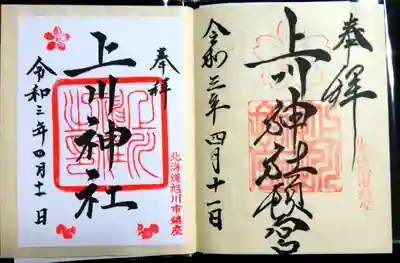 奉拝
上川神社
令和三年四月十一日
北海道旭川市鎮座
奉拝
上川神社頓宮
令和三年四月十一日